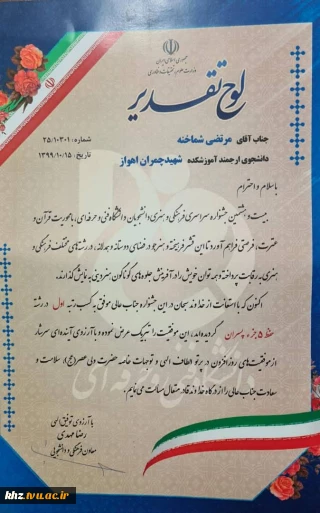 جمهوری اسلامی ایران
وزارت علوم، تحقیقات و فناوری
لوح تقدیر
جناب آقای مرتضی شماخته
شماره: ۲۵/۱۰۳۰۱
دانشجوی ارجمند آموزشکده شهید چمران اهواز
تاریخ: ۱۳۹۹/۱۰/۱۵
با سلام و احترام
بیست و هشتمین جشنواره سراسری فرهنگی و هنری دانشجویان دانشگاه فنی و حرفه‌ای، با محوریت قرآن و
عترت، فرصتی فراهم آورد تا این قشر فرهیخته و هنرجو در فضای دوستانه و همدلانه، در رشته‌های مختلف فرهنگی و
هنری به رقابت پرداخته و همه توان خویش را در آفرینش جلوه‌های گوناگون هنر دینی به نمایش گذارند.
اکنون که با استعانت از خداوند سبحان در این جشنواره جناب عالی موفق به کسب رتبه اول در رشته
حفظ ۵ جزء پسران گردیده‌اید، این موفقیت را تبریک عرض نموده و با آرزوی آینده‌ای سرشار
از موفقیت‌های روزافزون در پرتو الطاف الهی و توجهات خاصه حضرت ولی عصر (عج)، سلامت و
سعادت جناب عالی را از درگاه خداوند قادر متعال مسالت می‌نمایم.
با آرزوی توفیق الهی
رضا مهدی
معاون فرهنگی و دانشجویی
khz.tvu.ac.ir